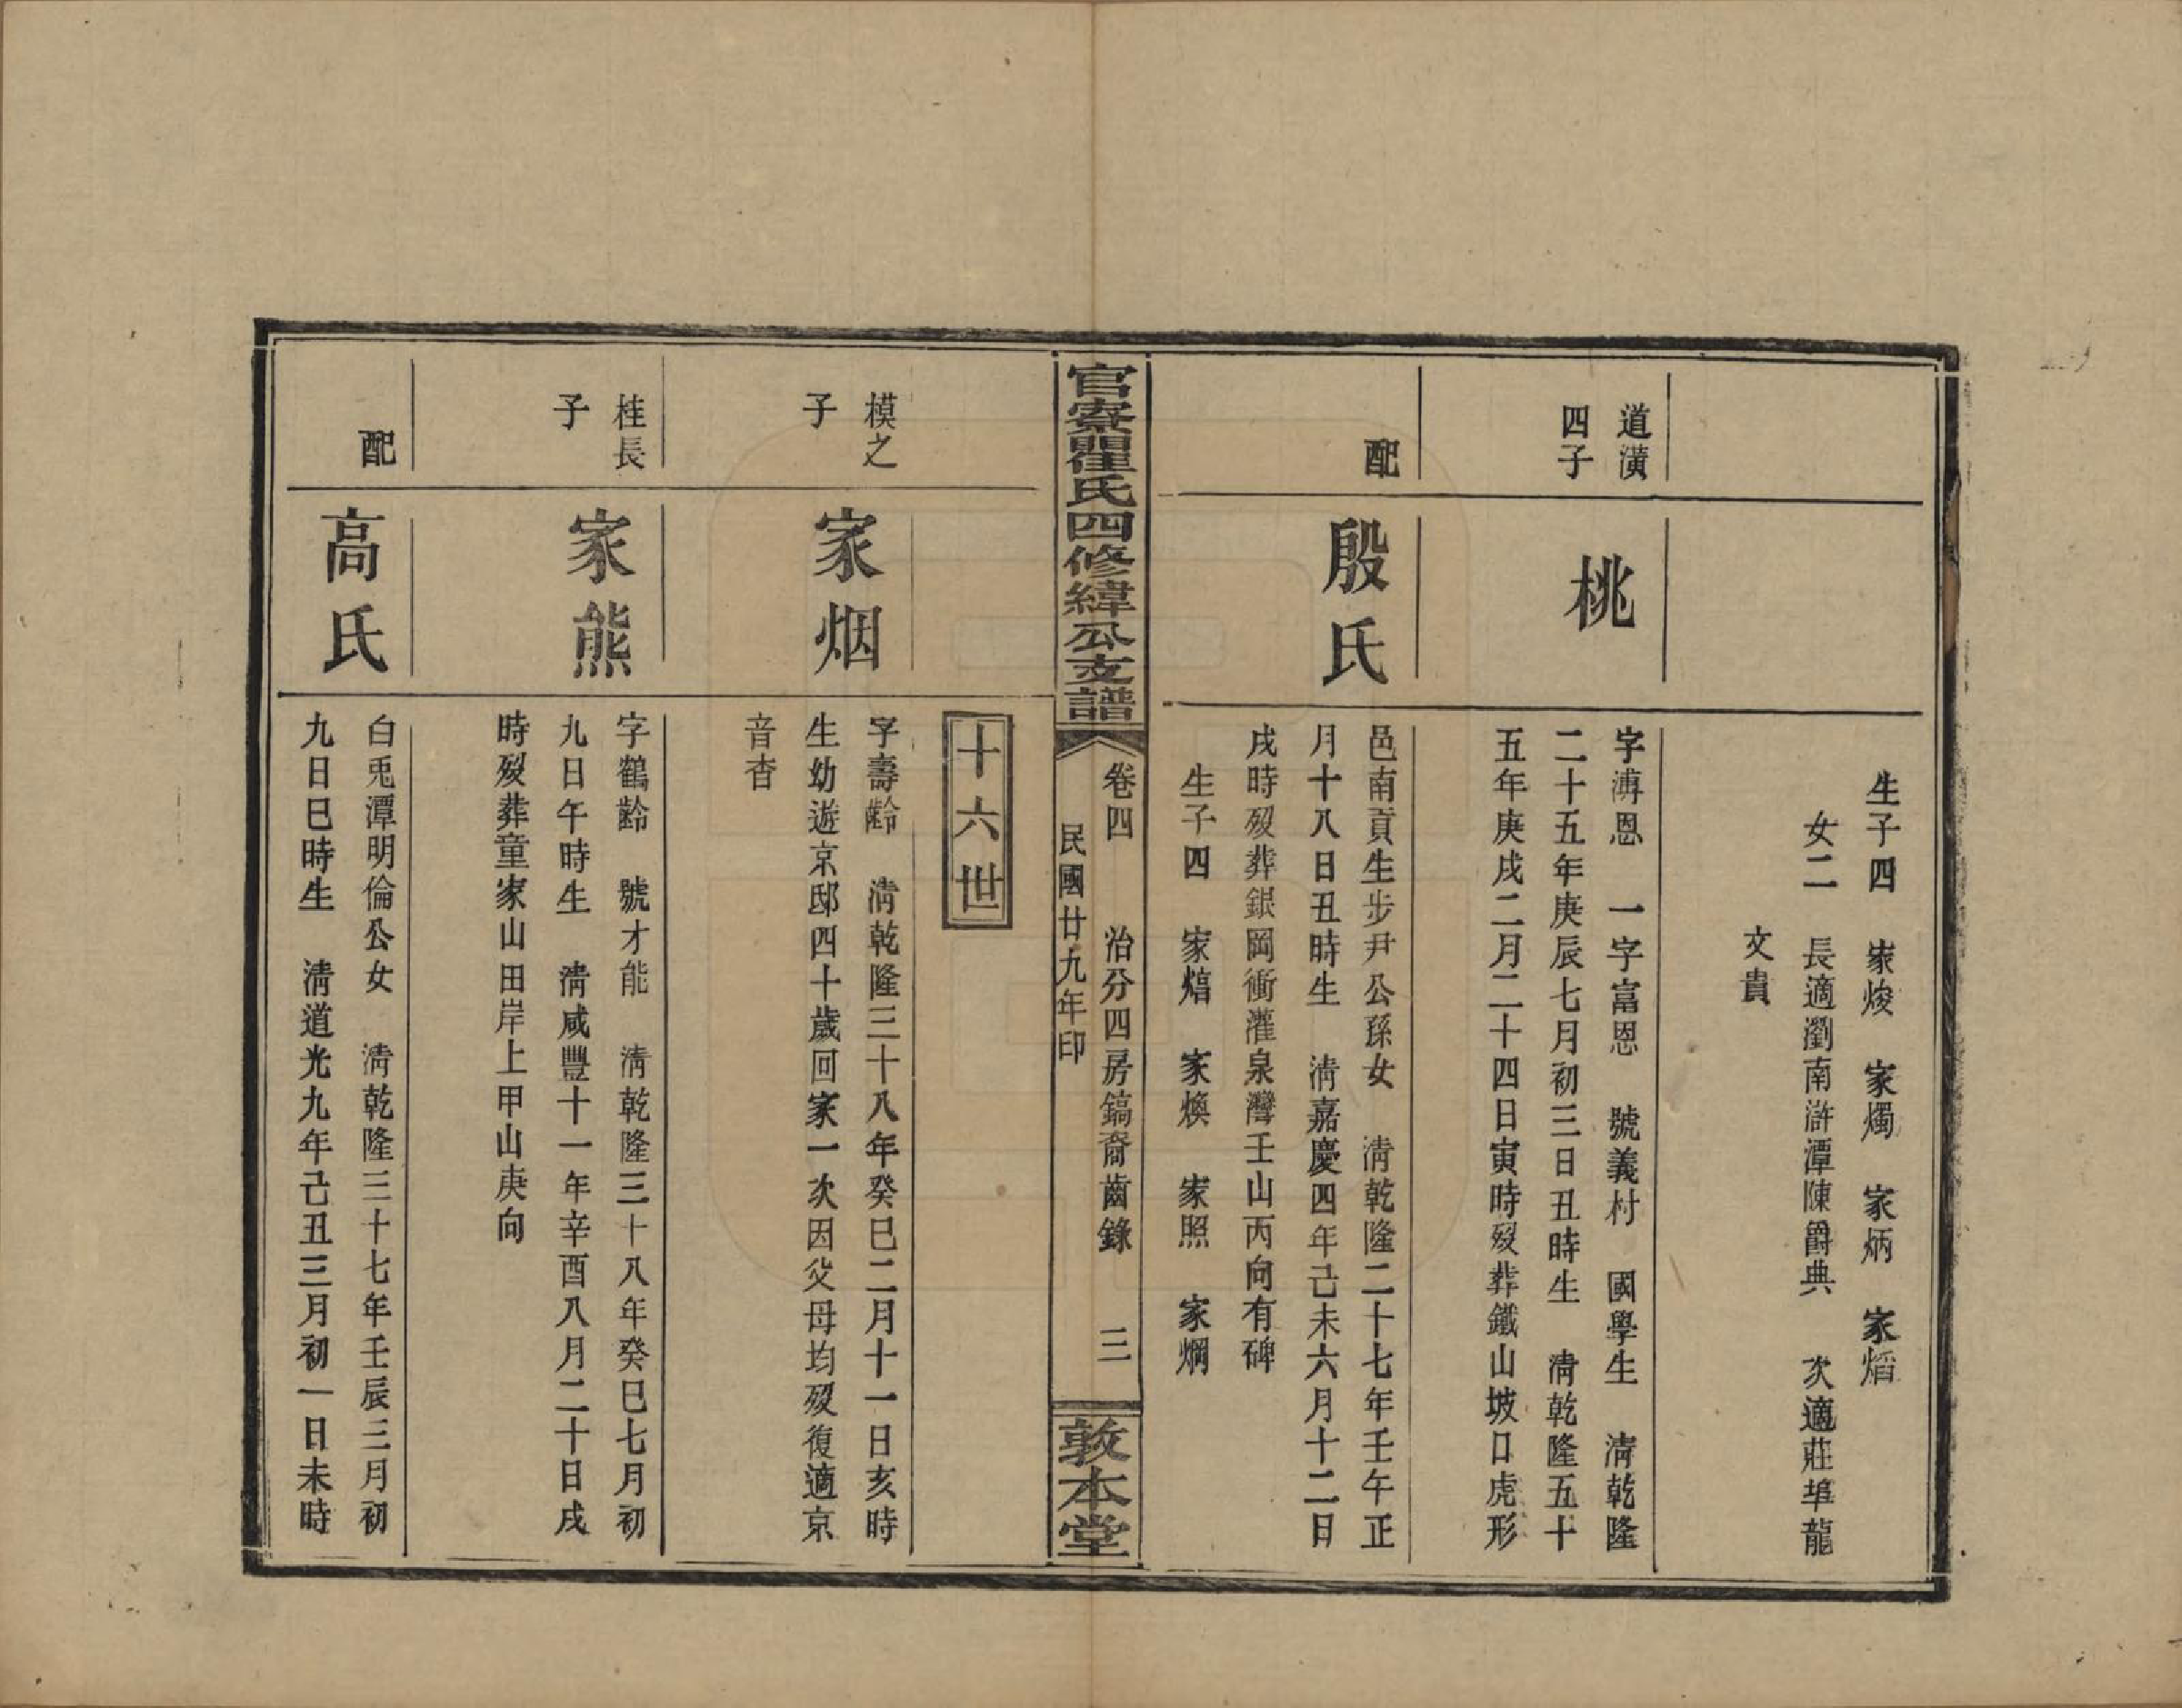 生子四　家焌　家燭　家炳　家熖
女二　長適瀏南滸潭陳爵典　次適莊埠龍
文貴
道潢
四子
桃
字溥恩　一字富恩　號義村　國學生　清乾隆
二十五年庚辰七月初三日丑時生　清乾隆五十
五年庚戌二月二十四日寅時歿葬鐵山坡口虎形
配
殷氏
邑南貢生步尹公孫女　清乾隆二十七年壬午正
月十八日丑時生　清嘉慶四年己未六月十二日
戌時歿葬銀岡衝灌泉灣壬山丙向有碑
生子四　家熺　家煥　家照　家烱
官寮瞿氏四修緯公支譜
卷四　治分四房鎬裔齒錄　三
民國廿九年印
敦本堂
十六世
模之
子
家烟
字壽齡　清乾隆三十八年癸巳二月十一日亥時
生幼遊京邸四十歲回家一次因父母均歿復適京
音杳
桂長
子
家熊
字鶴齡　號才能　清乾隆三十八年癸巳七月初
九日午時生　清咸豐十一年辛酉八月二十日戌
時歿葬童家山田岸上甲山庚向
配
高氏
白兎潭明倫公女　清乾隆三十七年壬辰三月初
九日巳時生　清道光九年己丑三月初一日未時